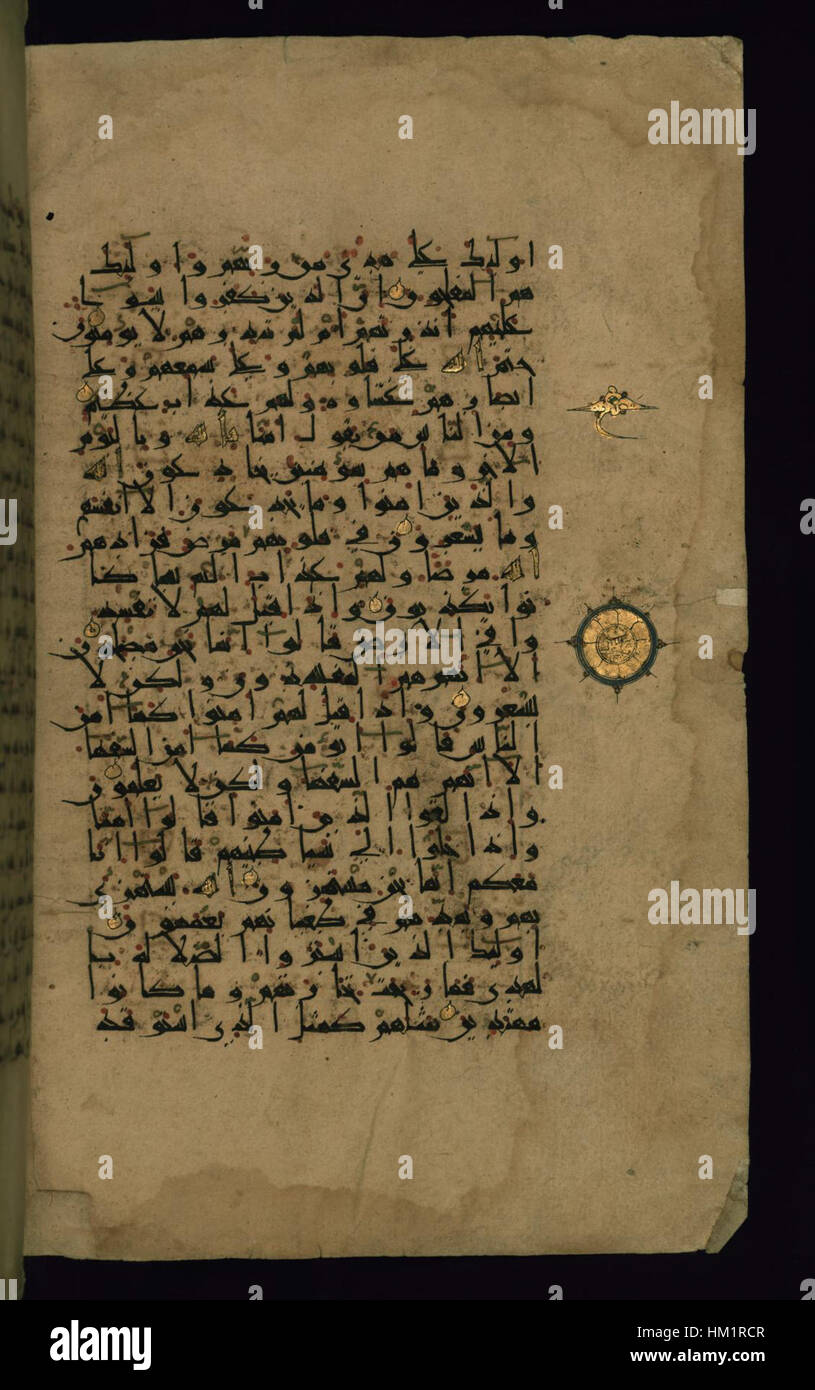 اولئك على هدى من ربهم واولئك
هم المفلحون ان الذين كفروا سوا
عليهم اانذرتهم ام لم تنذرهم لا يومنون
ختم الله على قلوبهم وعلى سمعهم وعلى
ابصارهم غشاوة ولهم عذاب عظيم
ومن الناس من يقول امنا بالله وباليوم
الاخر وما هم بمومنين يخادعون الله
والذين امنوا وما يخدعون الا انفسهم
وما يشعرون في قلوبهم مرض فزادهم
الله مرضا ولهم عذاب اليم بما كا
نوا يكذبون واذا قيل لهم لا تفسد
وا في الارض قالوا انما نحن مصلحون
الا انهم هم المفسدون ولكن لا
يشعرون واذا قيل لهم امنوا كما امن
الناس قالوا انومن كما امن السفها
الا انهم هم السفها ولكن لا يعلمون
واذا لقوا الذين امنوا قالوا امنا
واذا خلوا الى شياطينهم قالوا انا
معكم انما نحن مستهزون الله يستهزى
بهم ويمدهم في طغيانهم يعمهون
اولئك الذين اشتروا الضلالة با
لهدى فما ربحت تجارتهم وما كانوا
مهتدين مثلهم كمثل الذي استوقد
alamy
alamy
Image ID: HM1RCR
www.alamy.com